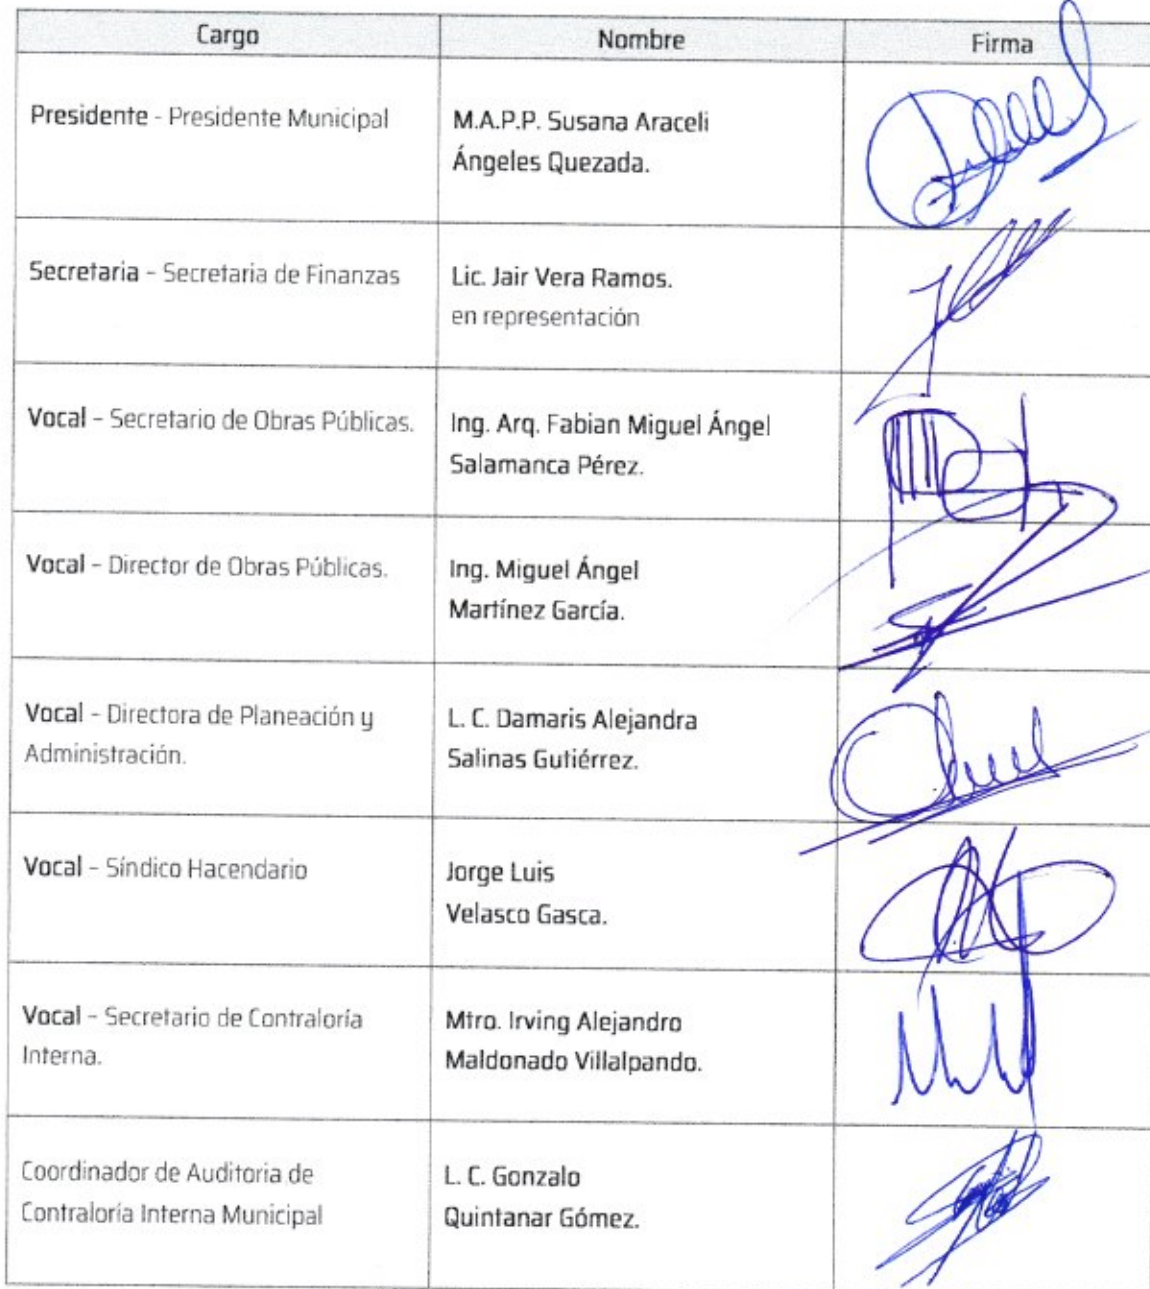 Cargo Nombre Firma
Presidente - Presidente Municipal
M.A.P.P. Susana Araceli
Ángeles Quezada.
Secretaria – Secretaria de Finanzas
Lic. Jair Vera Ramos.
en representación
Vocal – Secretario de Obras Públicas.
Ing. Arq. Fabian Miguel Ángel
Salamanca Pérez.
Vocal – Director de Obras Públicas.
Ing. Miguel Ángel
Martínez García.
Vocal – Directora de Planeación y
Administración.
L. C. Damaris Alejandra
Salinas Gutiérrez.
Vocal – Síndico Hacendario
Jorge Luis
Velasco Gasca.
Vocal – Secretario de Contraloría
Interna.
Mtro. Irving Alejandro
Maldonado Villalpando.
Coordinador de Auditoria de
Contraloría Interna Municipal
L. C. Gonzalo
Quintanar Gómez.